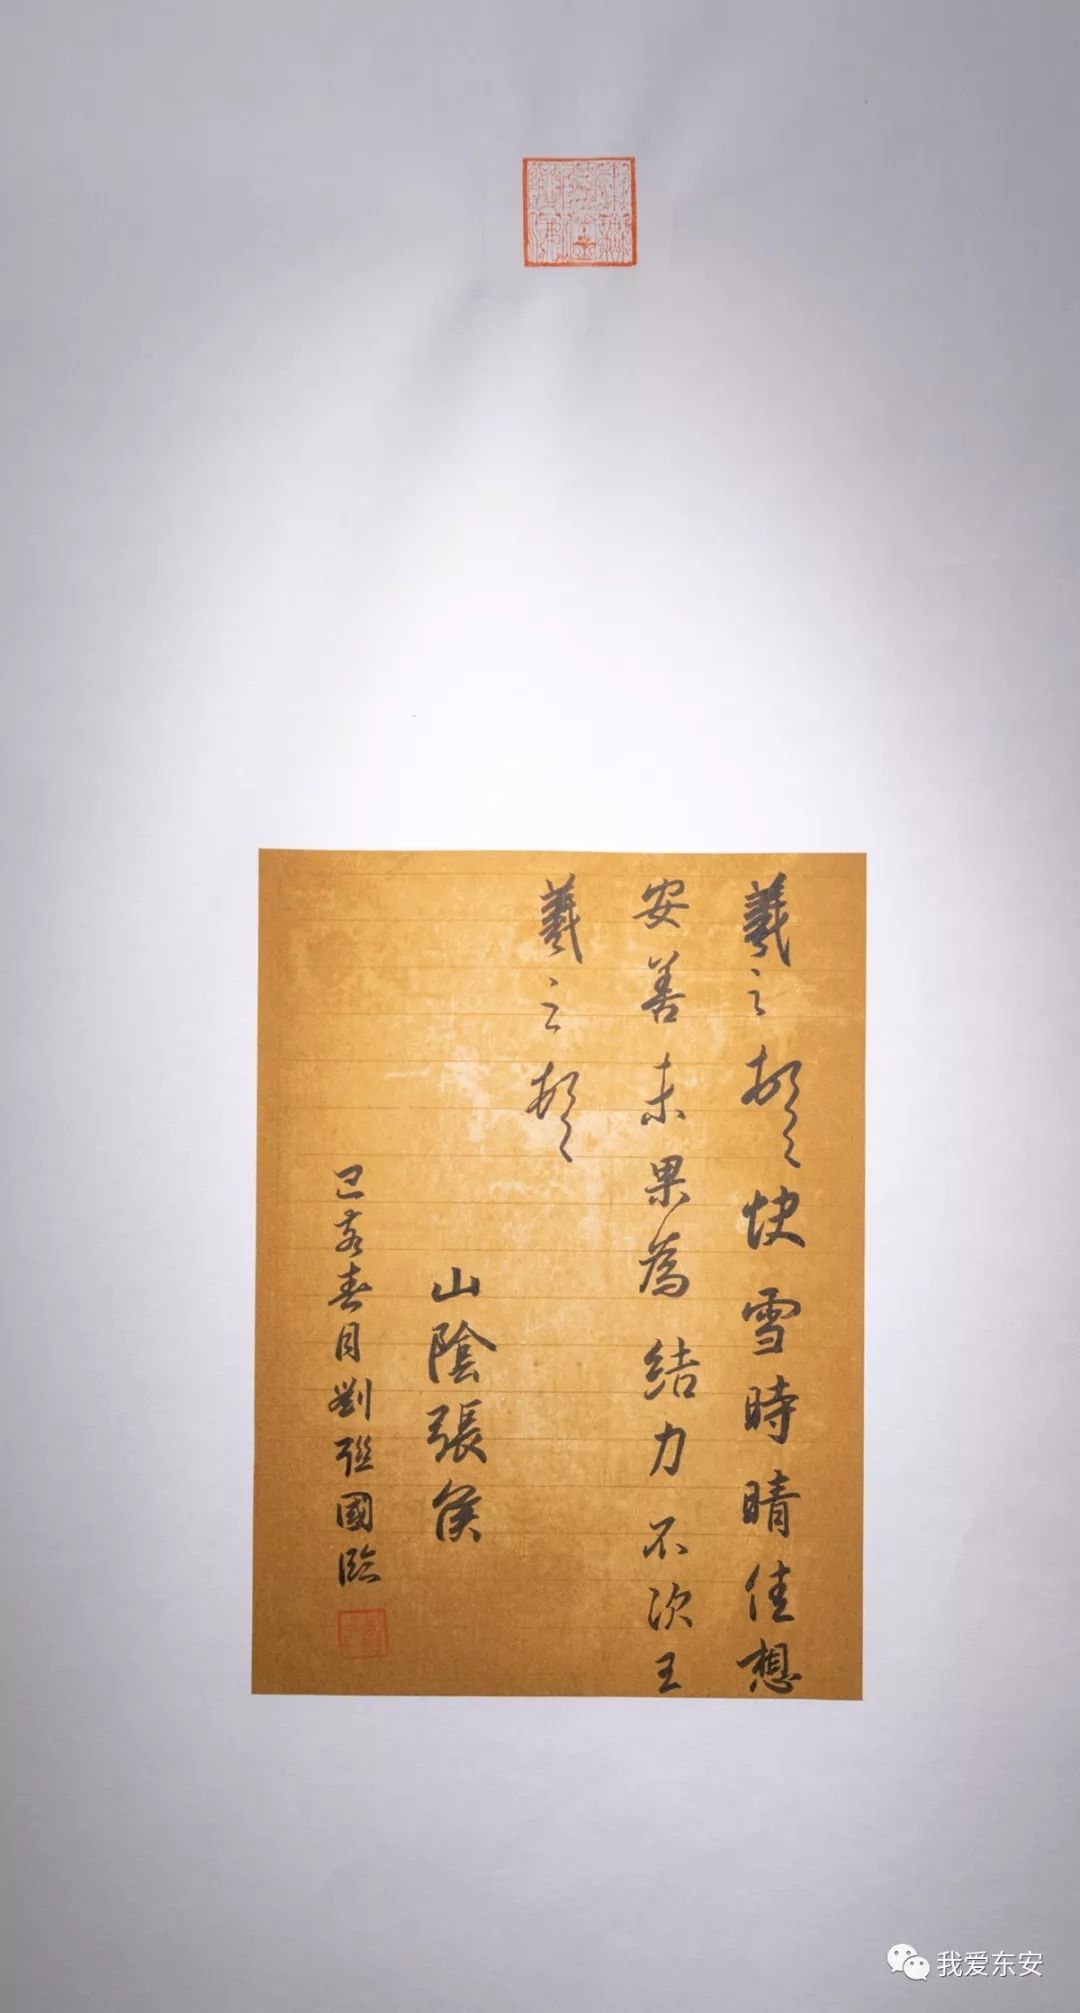 羲之頓首快雪時晴佳想
安善未果為結力不次王
羲之頓首
山陰張侯
己亥春月劉聯國臨
我爱东安